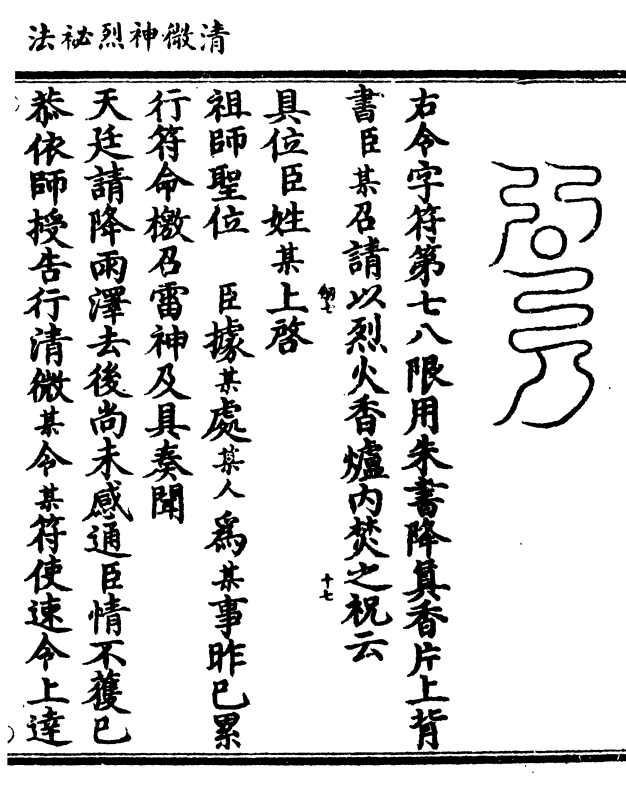 清微神烈祕法
右令字符第七八限用朱書降真香片上背
書臣某召請以烈火香爐內焚之祝云
具位臣姓某上啓
祖師聖位　臣據某處某人為某事昨已累
行符命檄召雷神及具奏聞
天廷請降雨澤去後尚未感通臣情不獲已
恭依師授告行清微某令某符使速令上達
十七